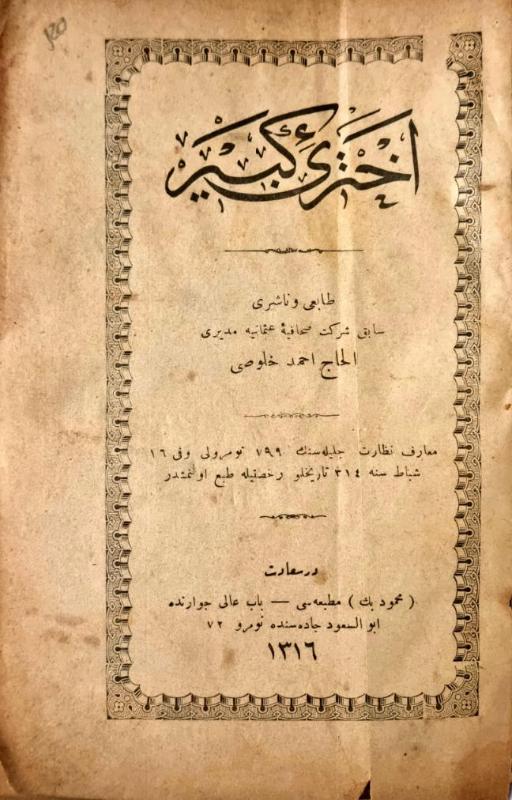 اخترئ كبير
طابعى وناشرى
سابق شركت صحافيۀ عثمانيه مديرى
الحاج احمد خلوصى
معارف نظارت جليله‌سنك ٧٩٩ نومرولى وفى ١٦
شباط سنه ٣١٤ تاريخلو رخصتيله طبع اولنمشدر
درسعادت
( محمود بك ) مطبعه‌سى — باب عالى جوارنده
ابو السعود جاده‌سنده نومرو ٧٢
١٣١٦